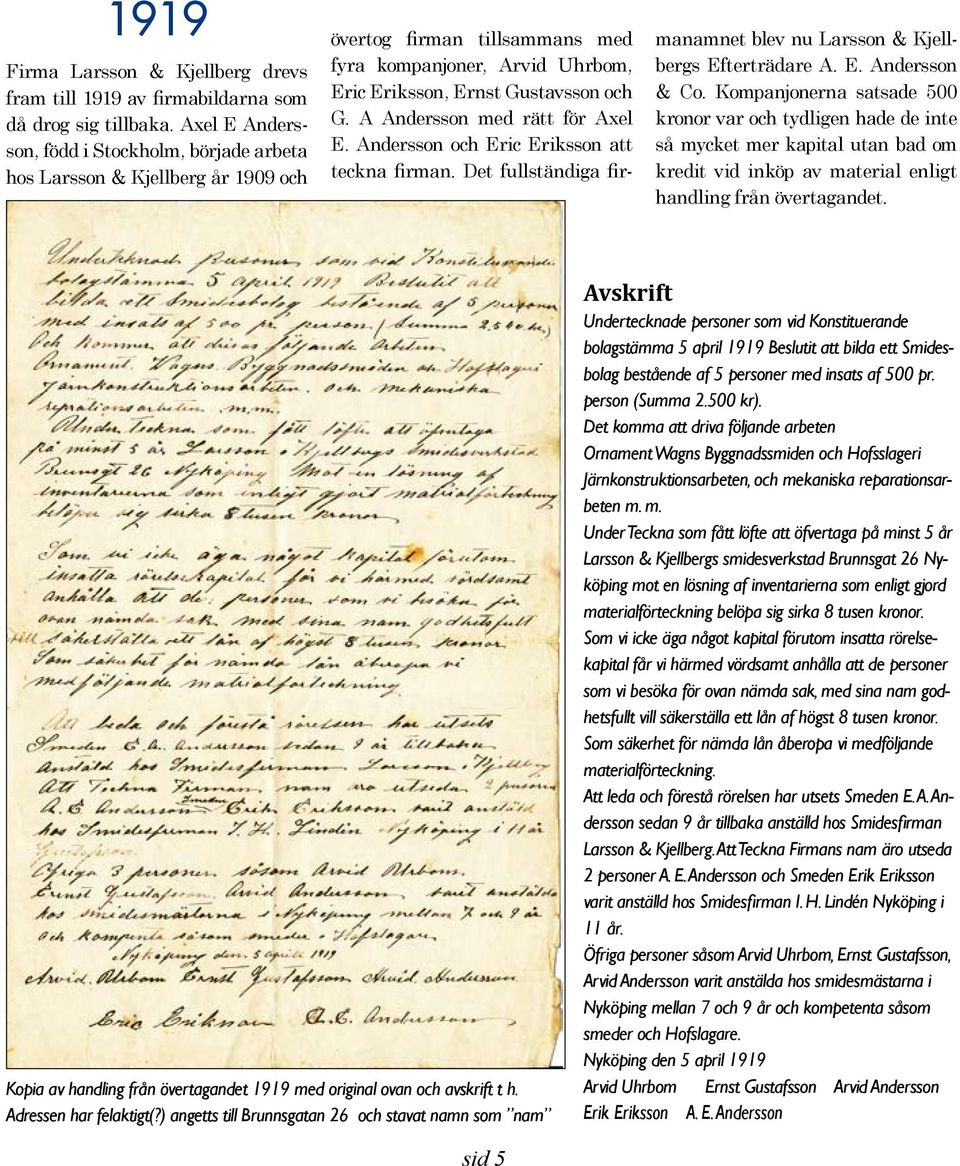 1919
Firma Larsson & Kjellberg drevs
fram till 1919 av firmabildarna som
då drog sig tillbaka. Axel E Anders-
son, född i Stockholm, började arbeta
hos Larsson & Kjellberg år 1909 och
övertog firman tillsammans med
fyra kompanjoner, Arvid Uhrbom,
Eric Eriksson, Ernst Gustavsson och
G. A Andersson med rätt för Axel
E. Andersson och Eric Eriksson att
teckna firman. Det fullständiga fir-
manamnet blev nu Larsson & Kjell-
bergs Efterträdare A. E. Andersson
& Co. Kompanjonerna satsade 500
kronor var och tydligen hade de inte
så mycket mer kapital utan bad om
kredit vid inköp av material enligt
handling från övertagandet.
Undertecknade Personer som vid Konstituerande
bolagstämma 5 april 1919 Beslutit att
bilda ett Smidesbolag bestående af 5 personer
med insats af 500 pr. person (Summa 2.500 kr.)
Och kommer att drivas följande Arbeten
Ornament. Wagns. Byggnadssmiden och Hofslageri
Järnkonstruktionsarbeten och mekaniska
reprationsarbeten m.m.
Under Teckna som fått löfte att öfvertaga
på minst 5 år Larsson & Kjellbergs Smidesverkstad
Brunsgt 26 Nyköping Mot en lösning af
inventarierna som enligt gjort matrialförteckning
belöpa sig sirka 8 tusen kronor
Som vi icke äga något kapital förutom
insatta rörelsekapital får vi härmed vördsamt
anhålla att de personer som vi besöka för
ovan nämda sak med sina nam godhetsfult
vill säkerställa ett lån af högst 8 tusen kronor
Som säkerhet för nämda lån åberopa vi
medföljande matrialförteckning.
Att leda och förestå rörelsen har utsets
Smeden E. A. Andersson sedan 9 år tillbaka
Anstäld hos Smidesfirman Larsson & Kjellberg
Att Teckna Firman nam äro utseda 2 personer
A. E Andersson Smeden Erik Eriksson varit anstäld
hos Smidesfirman I. H. Lindin Nyköping i 11 år
Gustafsson
Öfriga 3 personer såsom Arvid Uhrbom.
Ernst Gustafsson Arvid Andersson varit anstälda
hos smidesmästarna i Nyköping mellan 7 och 9 år
och kompenta såsom smeder o Hofslagare
Nyköping den 5 april 1919
Arvid Uhrbom Ernst Gustafsson Arvid Andersson
Eric Erikson A. E. Andersson
Kopia av handling från övertagandet 1919 med original ovan och avskrift t h.
Adressen har felaktigt(?) angetts till Brunnsgatan 26 och stavat namn som ”nam”
Avskrift
Undertecknade personer som vid Konstituerande
bolagstämma 5 april 1919 Beslutit att bilda ett Smides-
bolag bestående af 5 personer med insats af 500 pr.
person (Summa 2.500 kr).
Det komma att driva följande arbeten
Ornament Wagns Byggnadssmiden och Hofsslageri
Järnkonstruktionsarbeten, och mekaniska reparationsar-
beten m. m.
Under Teckna som fått löfte att öfvertaga på minst 5 år
Larsson & Kjellbergs smidesverkstad Brunnsgat 26 Ny-
köping mot en lösning af inventarierna som enligt gjord
materialförteckning belöpa sig sirka 8 tusen kronor.
Som vi icke äga något kapital förutom insatta rörelse-
kapital får vi härmed vördsamt anhålla att de personer
som vi besöka för ovan nämda sak, med sina nam god-
hetsfullt vill säkerställa ett lån af högst 8 tusen kronor.
Som säkerhet för nämda lån åberopa vi medföljande
materialförteckning.
Att leda och förestå rörelsen har utsets Smeden E. A. An-
dersson sedan 9 år tillbaka anställd hos Smidesfirman
Larsson & Kjellberg. Att Teckna Firmans nam äro utseda
2 personer A. E. Andersson och Smeden Erik Eriksson
varit anställd hos Smidesfirman I. H. Lindén Nyköping i
11 år.
Öfriga personer såsom Arvid Uhrbom, Ernst Gustafsson,
Arvid Andersson varit anstälda hos smidesmästarna i
Nyköping mellan 7 och 9 år och kompetenta såsom
smeder och Hofslagare.
Nyköping den 5 april 1919
Arvid Uhrbom Ernst Gustafsson Arvid Andersson
Erik Eriksson A. E. Andersson
sid 5